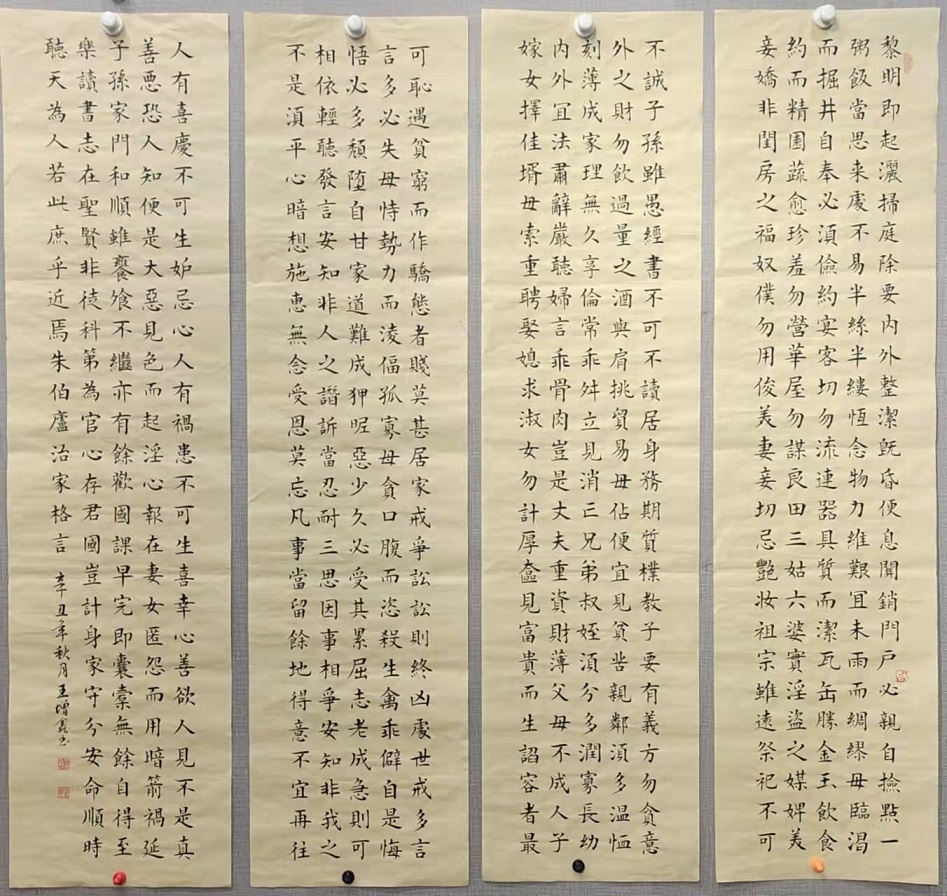 黎明即起灑掃庭除要内外整潔既昏便息關銷門戶必親自撿點一
粥飯當思来處不易半絲半縷恆念物力維艱冝未雨而綢繆毋臨渴
而掘井自奉必湏儉約宴客切勿流連器具質而潔瓦缶勝金玉飲食
約而精園蔬愈珍羞勿營華屋勿謀良田三姑六婆實淫盜之媒婢美
妾嬌非閨房之福奴僕勿用俊美妻妾切忌艷妝祖宗雖遠祭祀不可
不誠子孫雖愚經書不可不讀居身務期質樸教子要有義方勿貪意
外之財勿飲過量之酒與肩挑貿易毋佔便宜見貧苦親鄰湏多温恤
刻薄成家理無久享倫常乖舛立見消亡兄弟叔姪湏分多潤寡長幼
内外冝法肅辭嚴聽婦言乖骨肉豈是丈夫重資財薄父母不成人子
嫁女擇佳壻毋索重聘娶媳求淑女勿計厚奩見富貴而生諂容者最
可恥遇貧窮而作驕態者賤莫甚居家戒爭訟訟則終凶處世戒多言
言多必失毋恃勢力而凌偪孤寡毋貪口腹而恣殺生禽乖僻自是悔
悟必多頹墮自甘家道難成狎昵惡少久必受其累屈志老成急則可
相依輕聽發言安知非人之譖訴當忍耐三思因事相爭安知非我之
不是湏平心暗想施惠無念受恩莫忘凡事當留餘地得意不宜再往
人有喜慶不可生妒忌心人有禍患不可生喜幸心善欲人見不是真
善惡恐人知便是大惡見色而起淫心報在妻女匿怨而用暗箭禍延
子孫家門和順雖饔飧不繼亦有餘歡國課早完即囊橐無餘自得至
樂讀書志在聖賢非徒科第為官心存君國豈計身家守分安命順時
聽天為人若此庶乎近焉朱伯廬治家格言 辛丑年秋月王增書